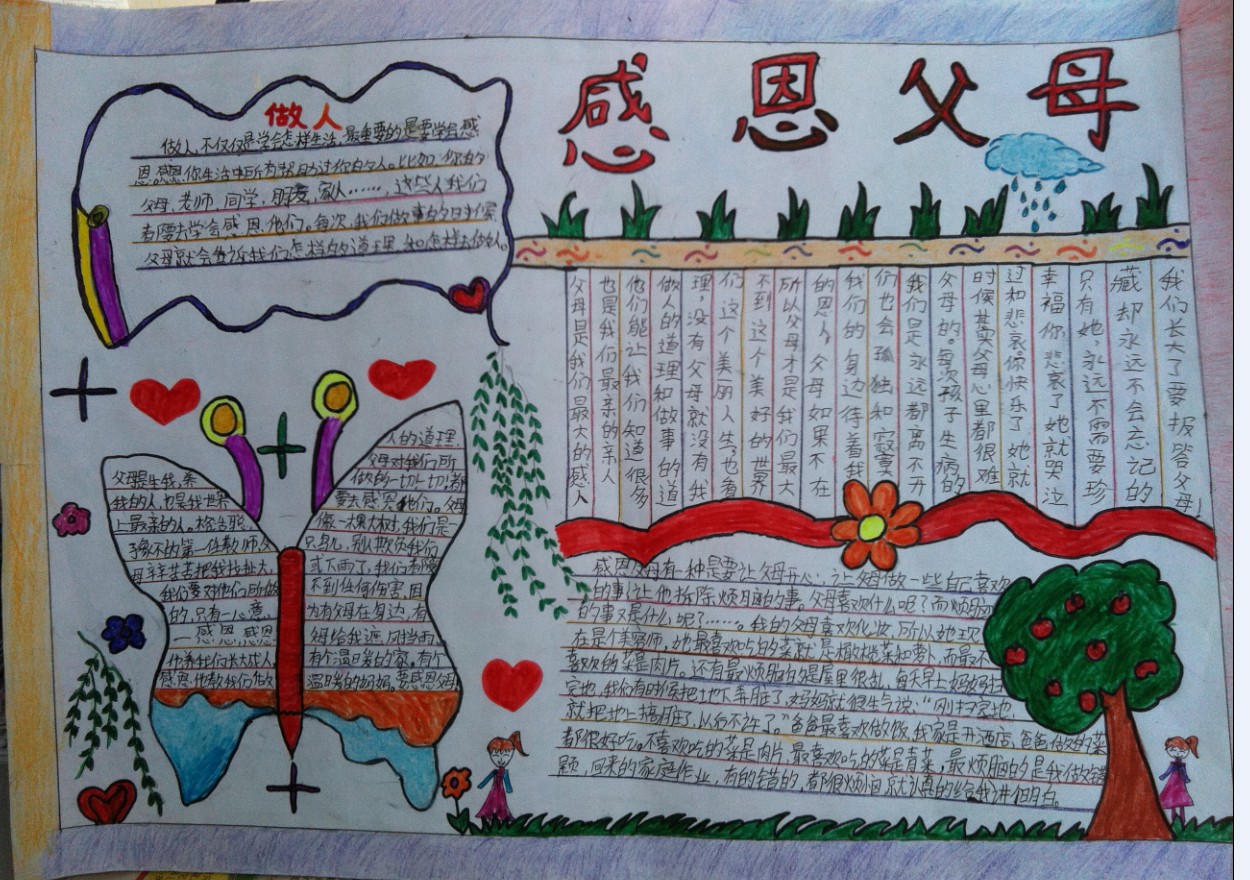 感恩父母
做人
做人,不仅仅是学会怎样生活,最重要的是要学会感
恩,感恩你生活中所有帮助过你的人。比如,你的
父母,老师,同学,朋友,家人……,这些人我们
都要去学会感恩他们。每次,我们做事的时候
父母就会告诉我们怎样的道理,和怎样去做人。
父母是我们最大的感人
也是我们最亲的亲人
他们能让我们知道很多
做人的道理和做事的道
理,没有父母就没有我
们这个美丽人生,也看
不到这个美好的世界
所以父母才是我们最大
的恩人,父母如果不在
我们的身边待着我
们也会孤独和寂寞
我们是永远都离不开
父母的。每次孩子生病的
时候其实父母心里都很难
过和悲哀,你快乐了她就
幸福你,悲哀了她就哭泣
只有她,永远不需要珍
藏却永远不会忘记的
我们长大了要报答父母!
父母是生我,养
我的人,也是我世界
上最亲的人。
子的第一任教师,父
母辛辛苦苦把我拉扯大,
我们要对他们所做
的,只有一心意
—感恩,感恩
他养我们长大成人,
感恩,他教我们做
人的道理,
父母对我们所
做的一切一切!都
要去感恩他们。父母
像一棵大树,我们是一
只鸟,别人欺负我们
或下雨了,我们都
不到任何伤害,因
为有父母在身边,有
母给我遮风挡雨,
有个温暖的家,有个
温暖的妈妈。要感恩父母
感恩父母有一种是要让父母开心,让父母做一些自己喜欢
的事,让他拆除烦脑的事。父母喜欢什么呢?而烦脑
的事又是什么呢?……。我的父母喜欢化妆,所以她现
在是个美容师,她最喜欢吃的菜就是橄榄菜和萝卜,而最不
喜欢的菜是肉片。还有最烦脑的是屋里很乱,每天早上妈妈扫
完地,我们有时候把地下弄脏了,妈妈就很生气说:“刚扫完地,
就把地上搞脏了,以后不许了。”爸爸最喜欢做饭,我家是开酒店,爸爸做的菜
都很好吃。不喜欢吃的菜是肉片,最喜欢吃的菜是青菜,最烦脑的是我做错
题,回来的家庭作业,有的错的,都很烦恼就认真的给我讲明白。